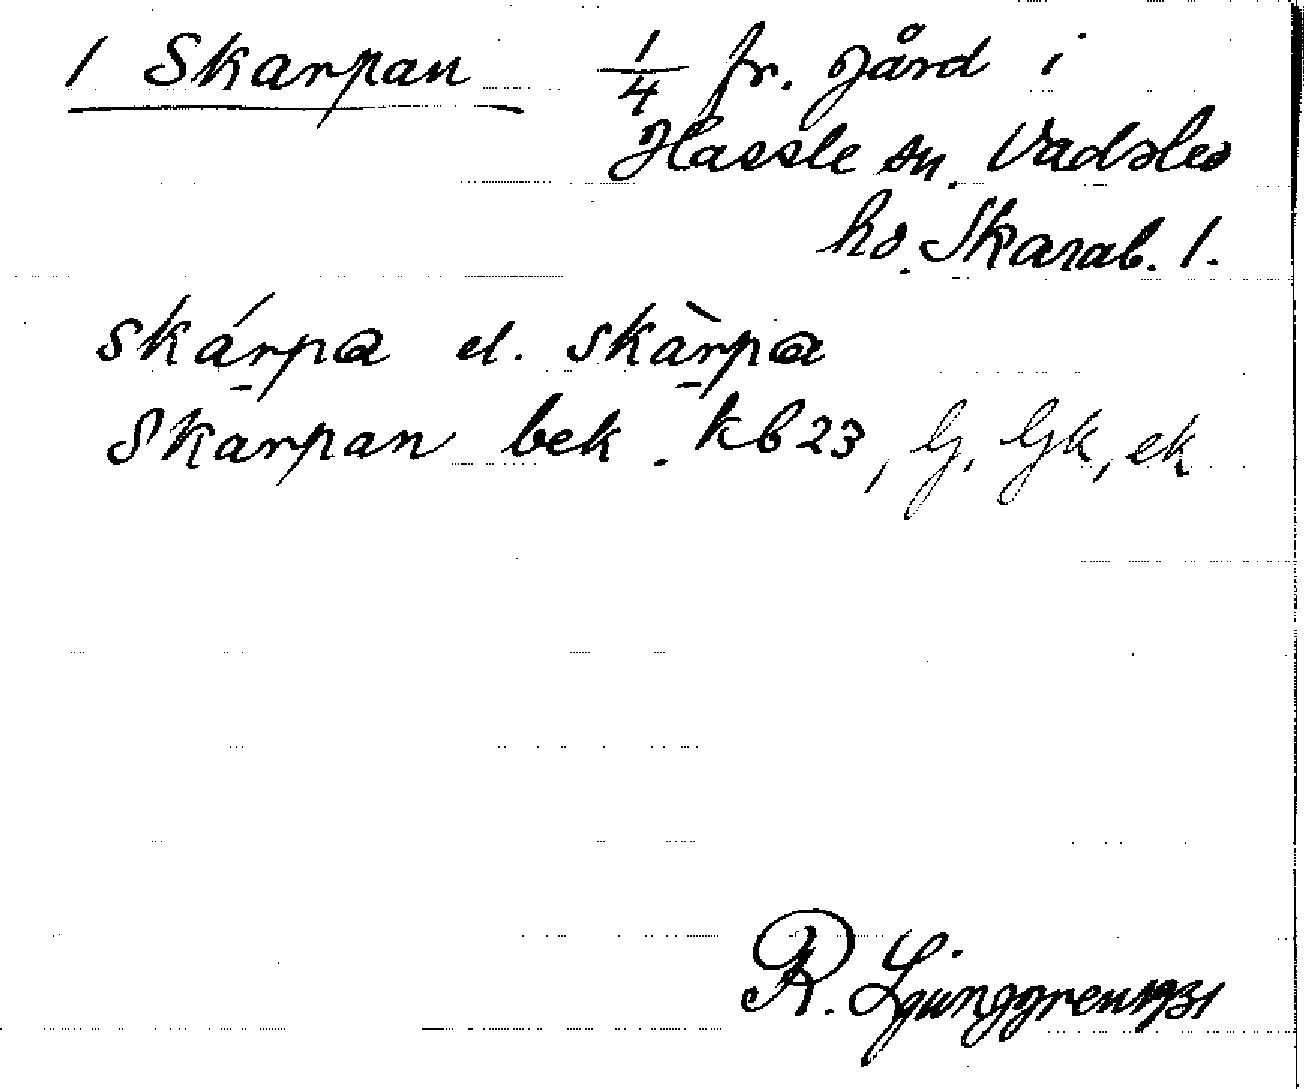 1 Skarpan 1/4 fr. gård i
Hassle sn. Vadsbo
hd. Skarab. l.
skárpa el. skàrpa
Skarpan bek. kb 23, G, Gk, ek
R. Ljunggren 1931